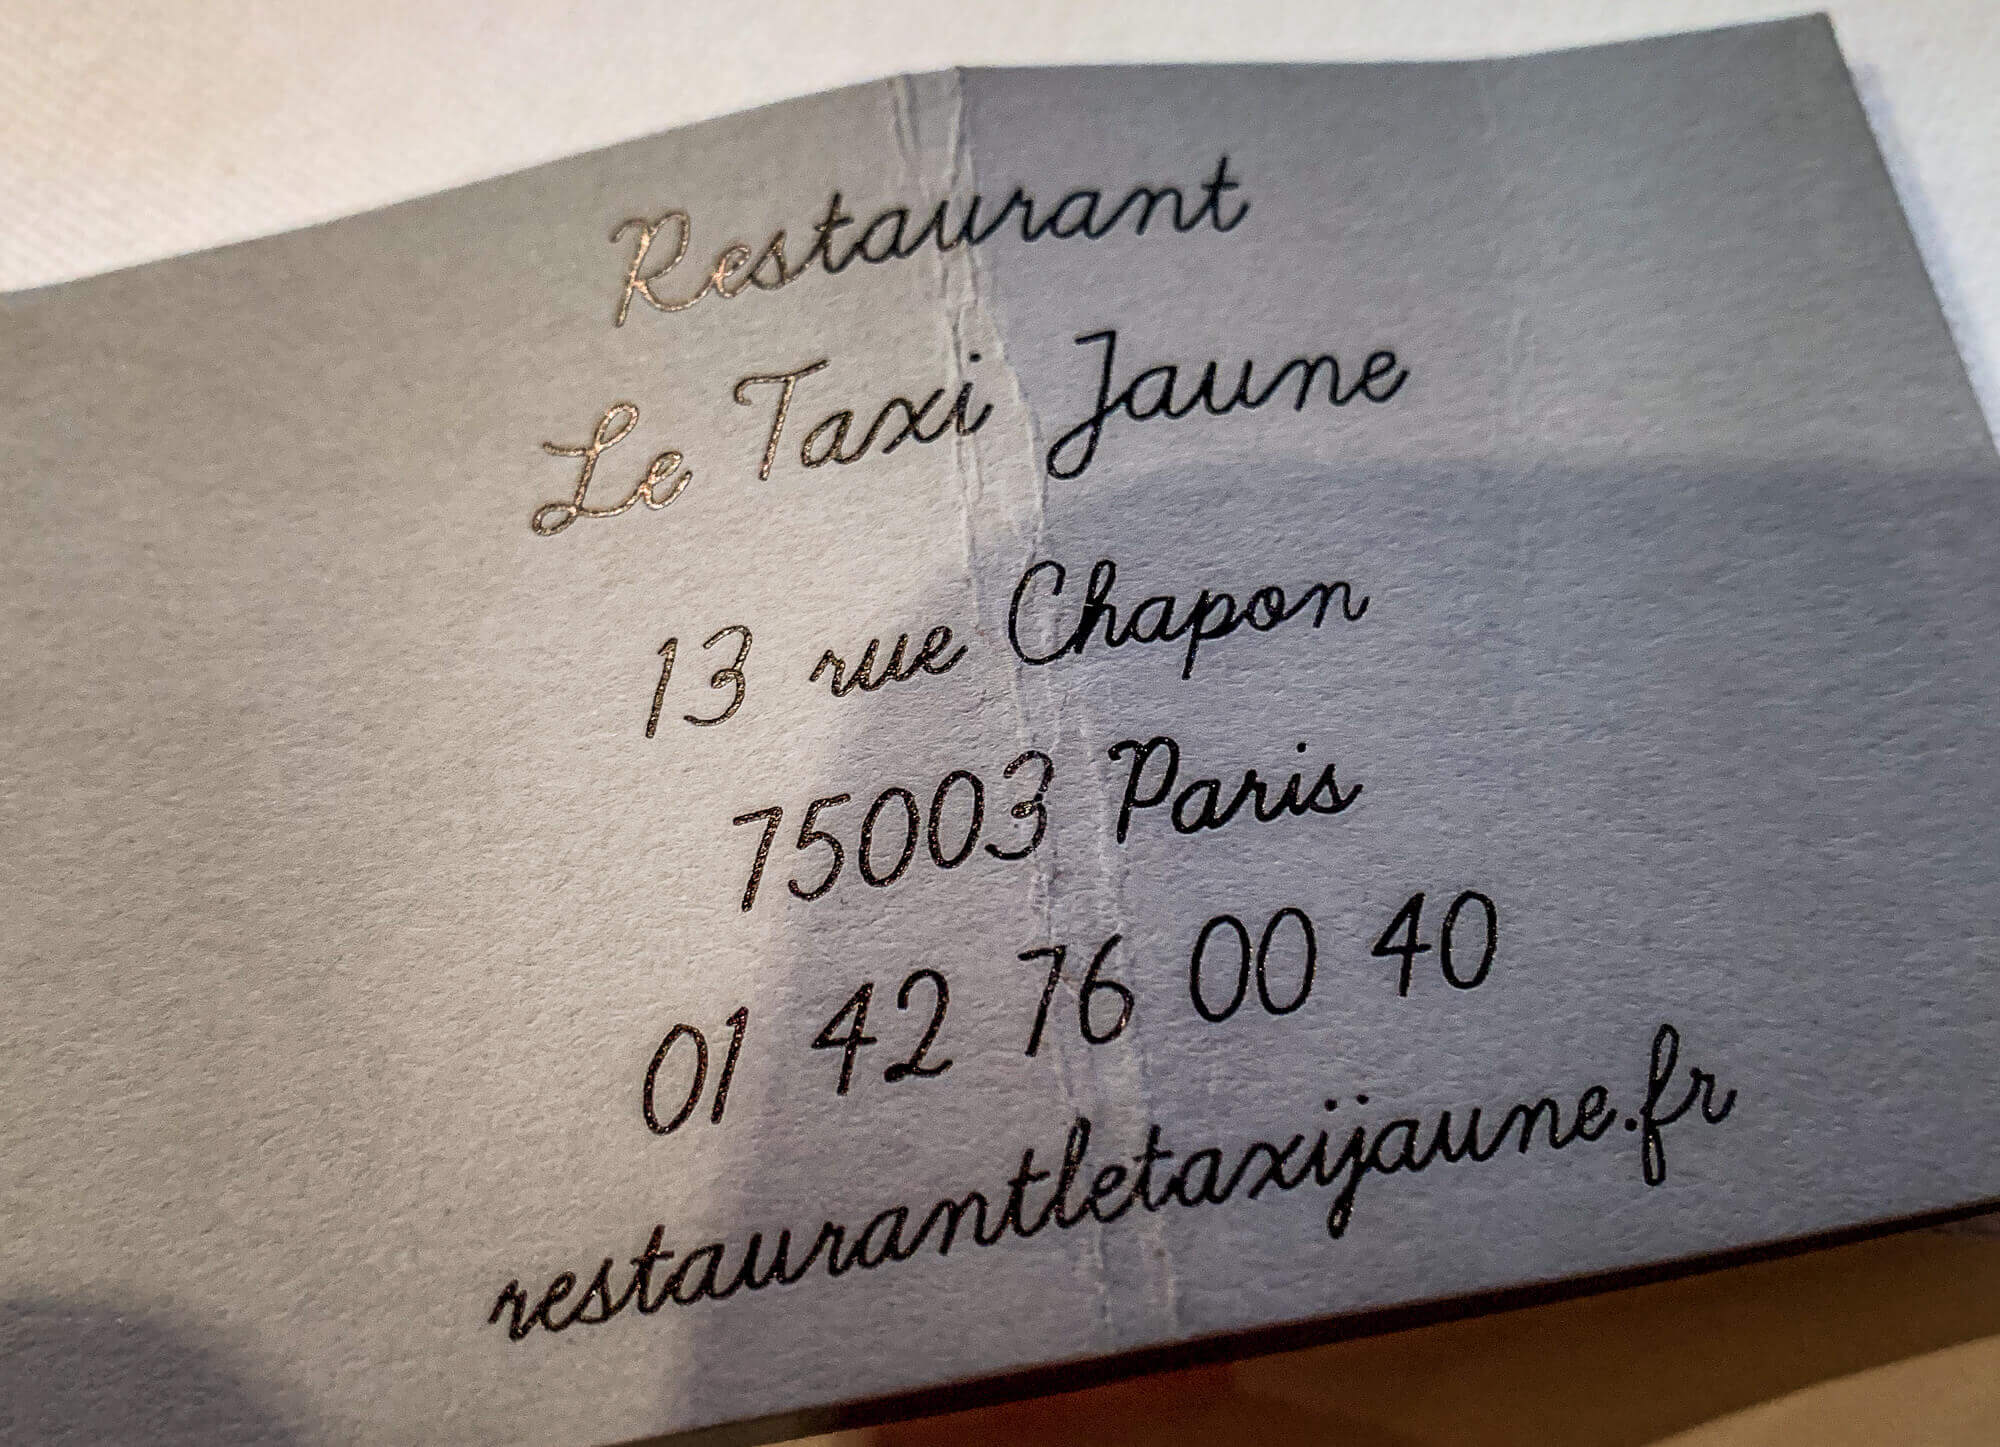 Restaurant
Le Taxi Jaune
13 rue Chapon
75003 Paris
01 42 76 00 40
restaurantletaxijaune.fr